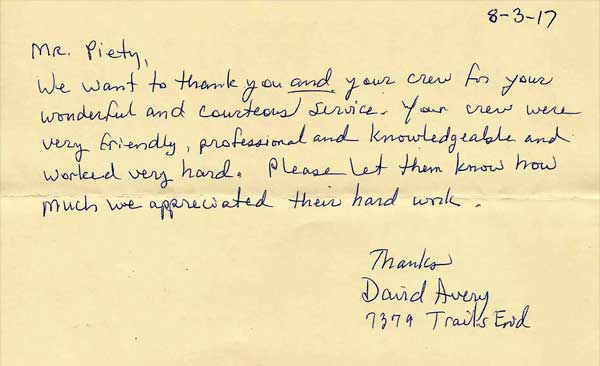 8-3-17
Mr. Piety,
We want to thank you and your crew for your
wonderful and courteous service. Your crew were
very friendly, professional and knowledgeable and
worked very hard. Please let them know how
much we appreciated their hard work.
Thanks
David Avery
7379 Trails End